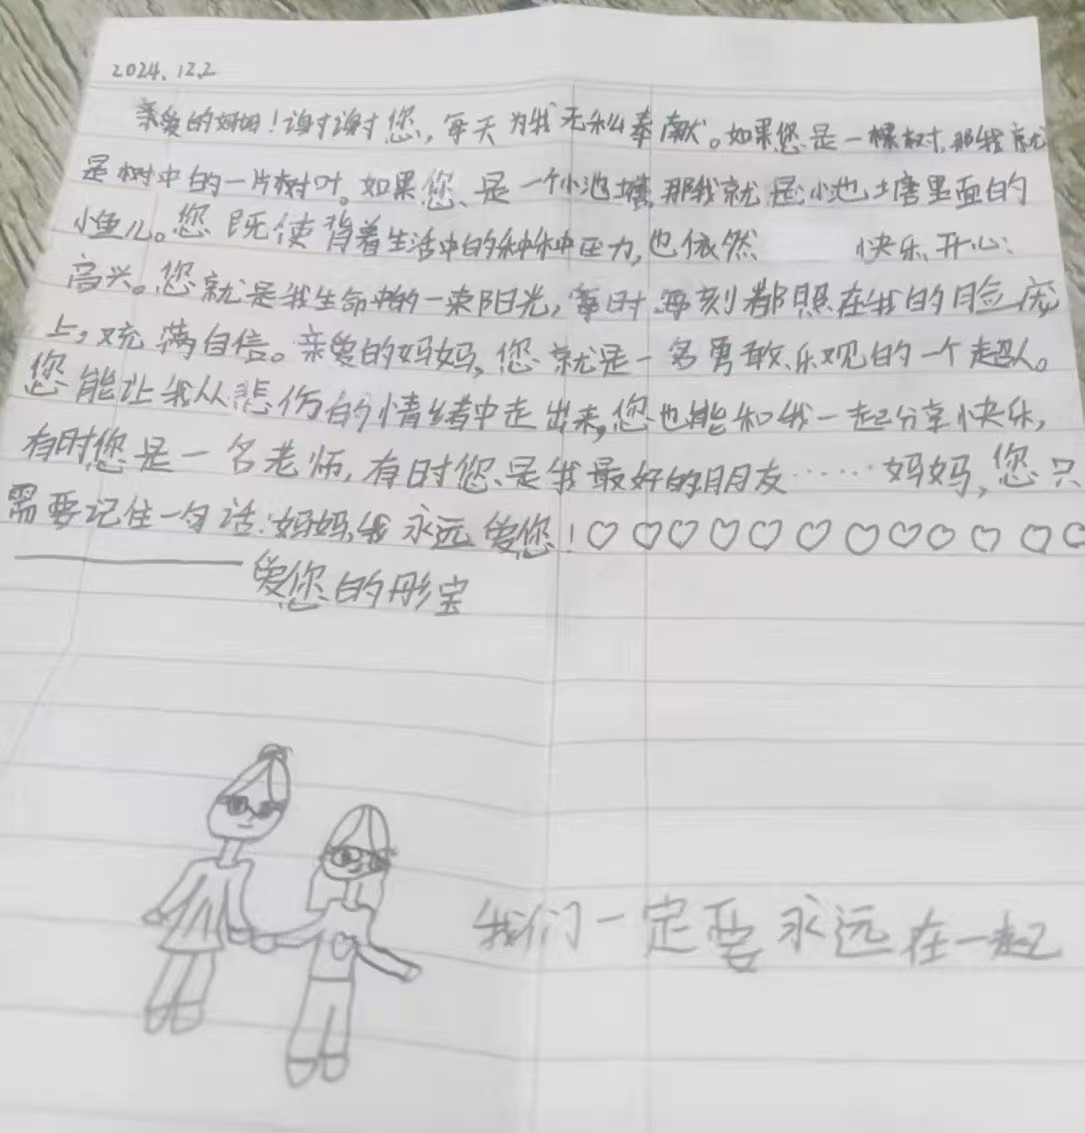 2024.12.2
亲爱的妈妈！谢谢您，每天为我无私奉献。如果您是一棵树，那我就
是树中的一片树叶。如果您是一个小池塘，那我就是小池塘里面的
小鱼儿。您既使背着生活中的种种压力，也依然 快乐、开心、
高兴。您就是我生命中的一束阳光，每时每刻都照在我的脸庞
上，充满自信。亲爱的妈妈，您就是一名勇敢、乐观的一个超人。
您能让我从悲伤的情绪中走出来，您也能和我一起分享快乐，
有时您是一名老师，有时您是我最好的朋友……妈妈，您只
需要记住一句话：妈妈，我永远爱您！♡♡♡♡♡♡♡♡♡♡♡♡
——爱您的彤宝
我们一定要永远在一起